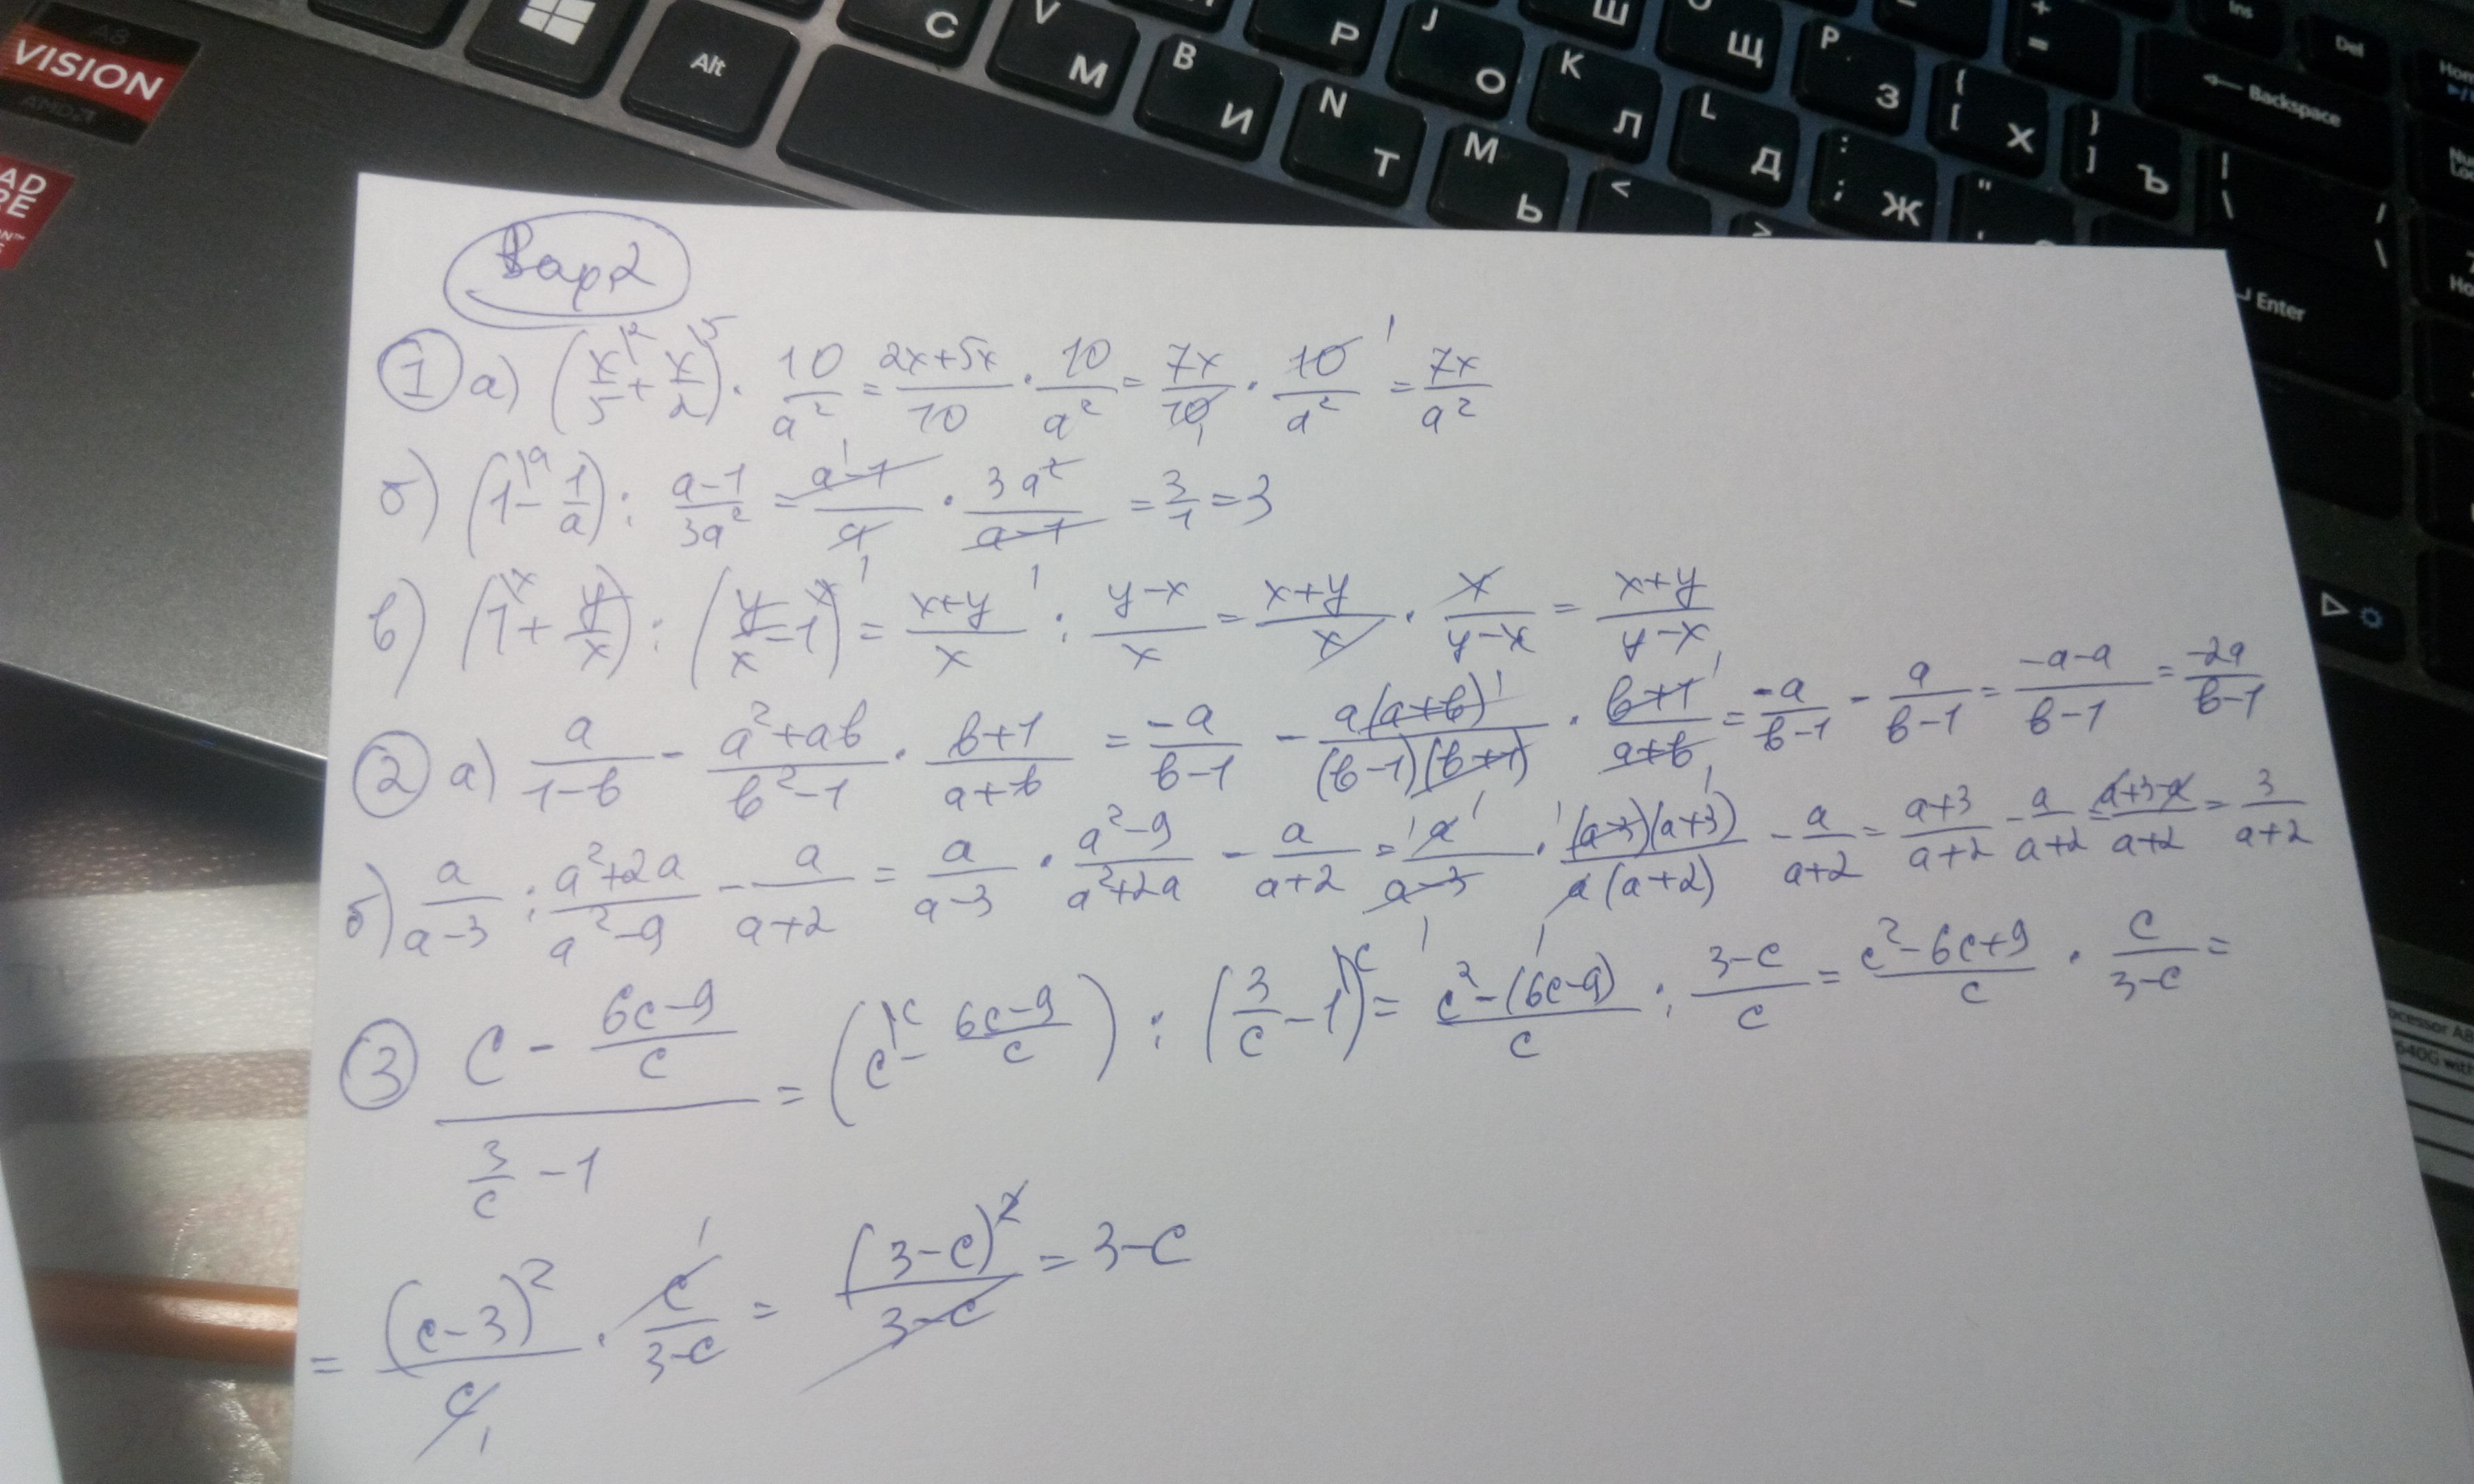 A8
VISION
AMD
Alt
C
V М
B И
N Т
Р
J О
M Ь
K Л
Ш
Щ
L Д
P З
: ; Ж
{ [ Х
} ] Ъ
+ =
Backspace
Ins
Del
Enter
<
>
| \
/ \
Вар 2
① а) (x/5 + x/2) · 10/a² = (2x+5x)/10 · 10/a² = 7x/10 · 10/a² = 7x/a²
б) (1 - 1/a) : (a-1)/3a² = (a-1)/a · 3a²/(a-1) = 3/1 = 3
в) (1 + y/x) : (y/x - 1) = (x+y)/x : (y-x)/x = (x+y)/x · x/(y-x) = (x+y)/(y-x)
② а) a/(1-b) - (a²+ab)/(b²-1) · (b+1)/(a+b) = -a/(b-1) - a(a+b)/(b-1)(b+1) · (b+1)/(a+b) = -a/(b-1) - a/(b-1) = (-a-a)/(b-1) = -2a/(b-1)
б) a/(a-3) : (a²+2a)/(a²-9) - a/(a+2) = a/(a-3) · (a²-9)/(a²+2a) - a/(a+2) = a/(a-3) · (a-3)(a+3)/a(a+2) - a/(a+2) = (a+3)/(a+2) - a/(a+2) = (a+3-a)/(a+2) = 3/(a+2)
③ (c - (6c-9)/c)/(3/c - 1) = (c - (6c-9)/c) : (3/c - 1) = (c²-(6c-9))/c : (3-c)/c = (c²-6c+9)/c · c/(3-c) =
= (c-3)²/c · c/(3-c) = (3-c)²/(3-c) = 3-c